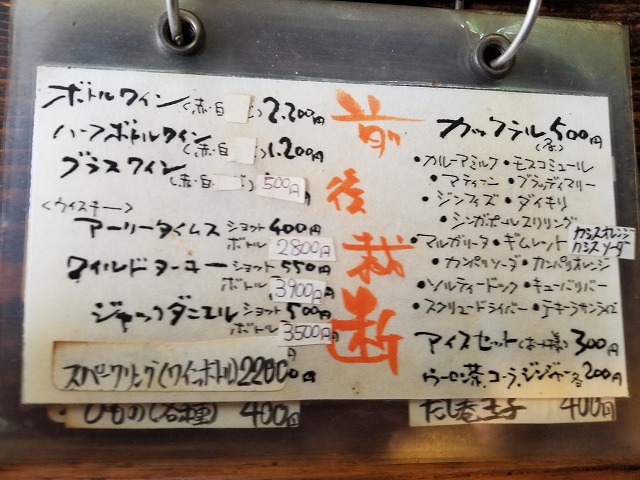 ボトルワイン(赤・白) 2.200円
ハーフボトルワイン
(赤・白) 1.200円
グラスワイン
(赤・白) 500円
<ウイスキー>
アーリータイムス ショット 400円
ボトル 2800円
ワイルドターキー ショット 550円
ボトル 3900円
ジャックダニエル ショット 500円
ボトル 3500円
スパークリング(ワインボトル) 2200円
ひもの(各種) 400円
前後裁断
カックテル 500円
・カルーアミルク ・モスコミュール
・マティーニ ・ブラッディマリー
・ジンフィズ ・ダイキリ
・シンガポールスリリング
・マルガリータ ・ギムレット カシスオレンジ
カシスソーダ
・カンパリソーダ ・カンパリオレンジ
・ソルティードック ・キューバリバー
・スクリュードライバー ・テキーラサンライズ
アイスセット(お一人様) 300円
ウーロン茶、コーラ、ジンジャー各200円
だし巻玉子 400円